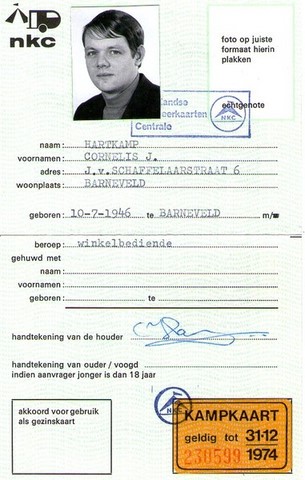 nkc
foto op juiste
formaat hierin
plakken
echtgenote
landse
eerkaarten
Centrale
NKC
naam: HARTKAMP
voornamen: CORNELIS J.
adres: J.v.SCHAFFELAARSTRAAT 6
woonplaats: BARNEVELD
geboren: 10-7-1946 te BARNEVELD m/w
beroep: winkelbediende
gehuwd met
naam:
voornamen:
geboren: te
handtekening van de houder
handtekening van ouder / voogd
indien aanvrager jonger is dan 18 jaar
akkoord voor gebruik
als gezinskaart
NKC
KAMPKAART
geldig tot 31·12
230599 1974